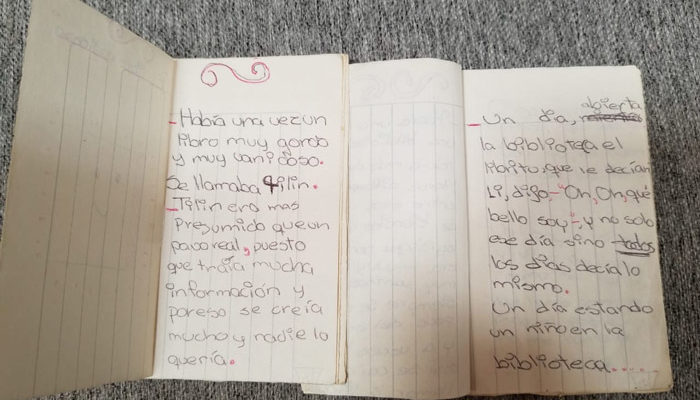 Había una vez un
libro muy gordo
y muy vanidoso.
Se llamaba Tilin.
Tilin era mas
Presumido que un
pavo real, puesto
que traía mucha
información y
por eso se creía
mucho y nadie lo
quería.
Un día, abierta
la biblioteca el
librito, que le decían
Li, dijo,-"Oh, Oh, qué
bello soy",-y no solo
ese día sino todos
los dias decía lo
mismo.
Un día estando
un niño en la
biblioteca......